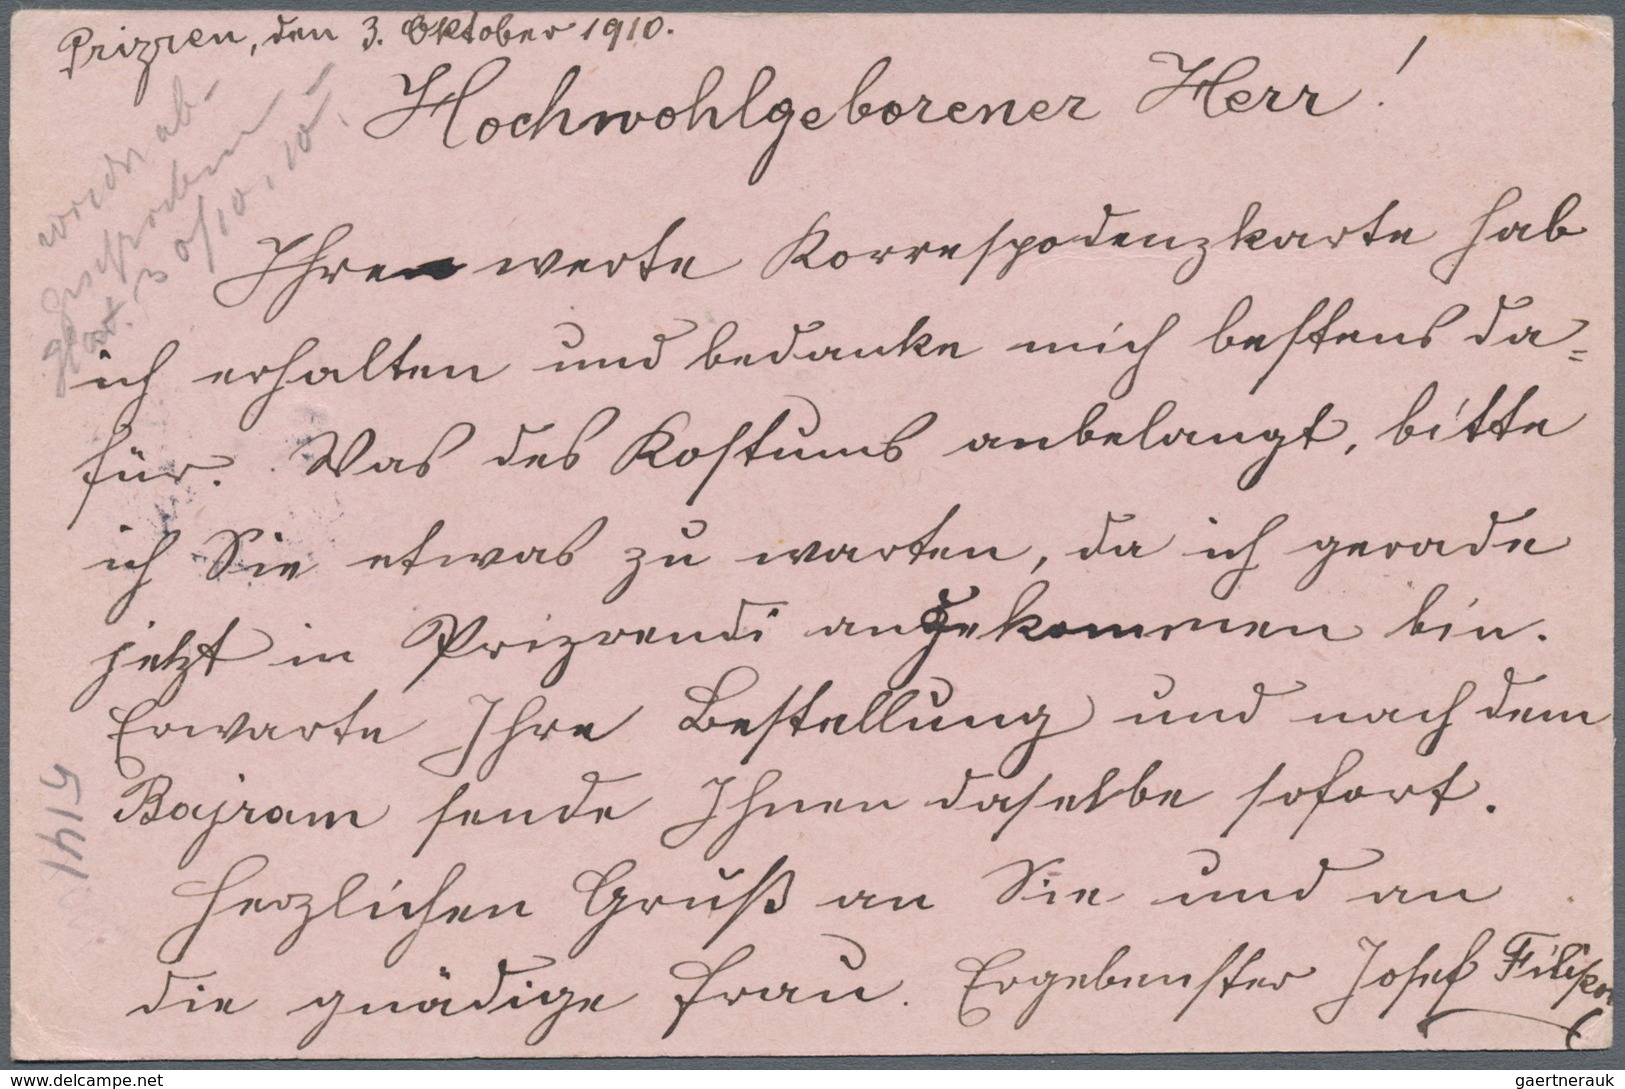 Prizren, den 3. Oktober 1910.
Hochwohlgeborener Herr!
Ihre werte Korrespodenzkarte hab
ich erhalten und bedanke mich bestens da=
für. Was des Kostums anbelangt, bitte
ich Sie etwas zu warten, da ich gerade
jetzt in Prizrendi angekommen bin.
Erwarte Ihre Bestellung und nach dem
Bajram sende Ihnen daselbe sofort.
Herzlichen Gruß an Sie und an
die gnädige Frau. Ergebenster Josef
30/10.10.
5141
www.delcampe.net
gaertnerauk